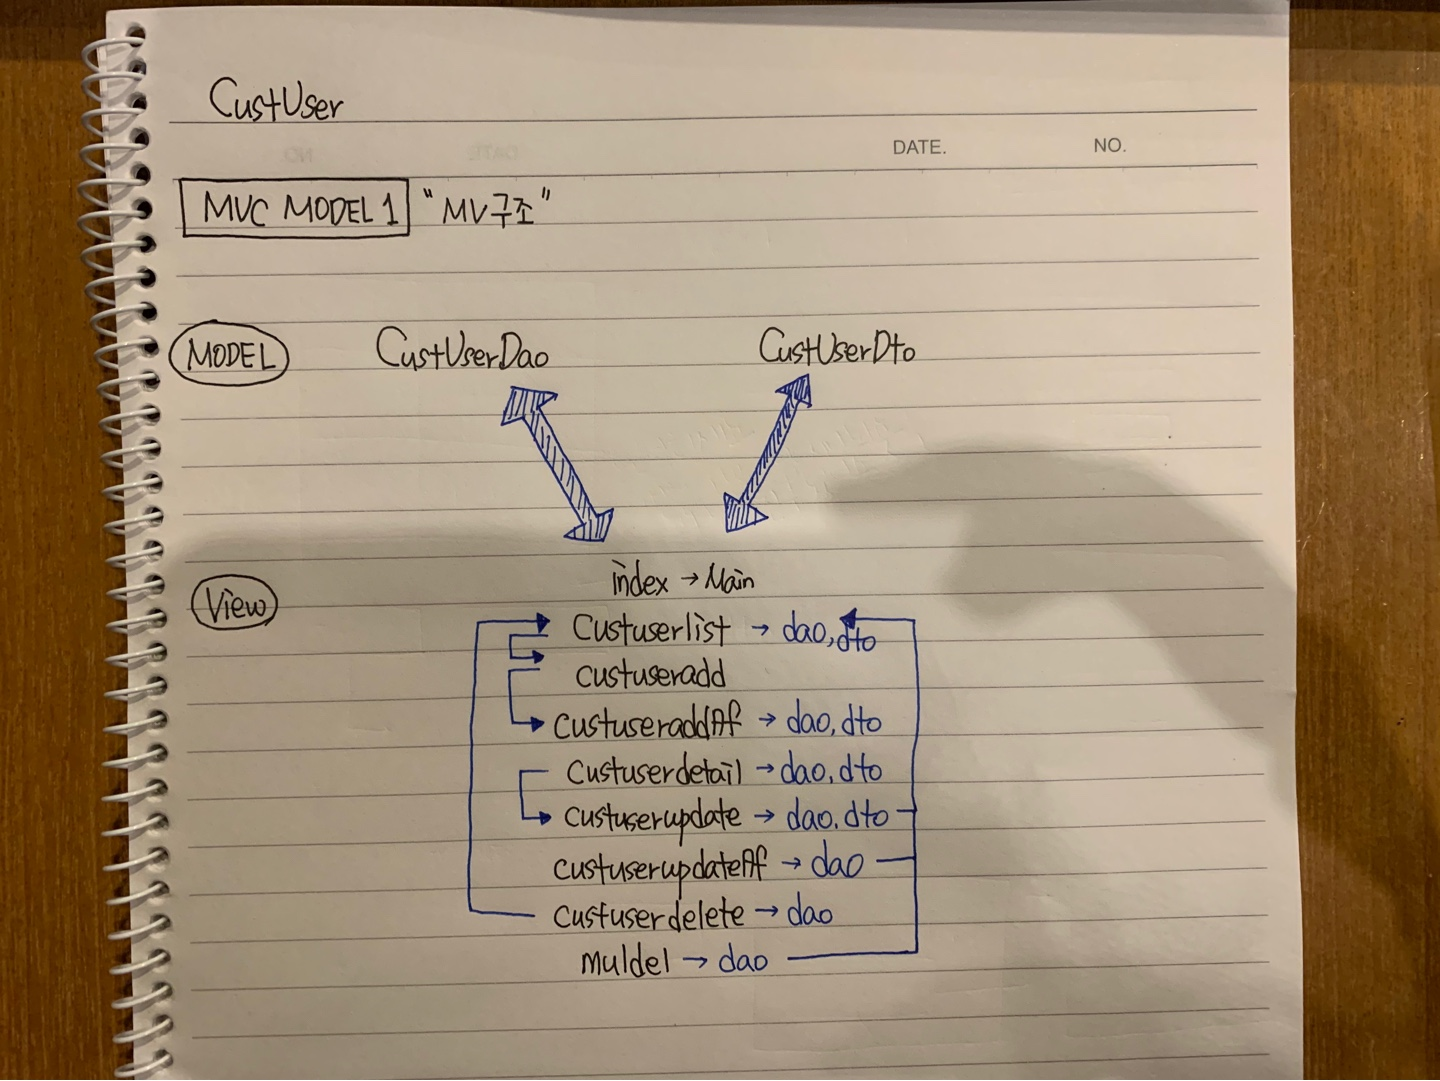 CustUser
DATE. NO.
MVC MODEL 1 "MV구조"
MODEL CustUserDao CustUserDto
index → Main
View
Custuserlist → dao, dto
custuseradd
custuseraddAf → dao, dto
Custuserdetail → dao, dto
custuserupdate → dao, dto
custuserupdateAf → dao
custuserdelete → dao
muldel → dao